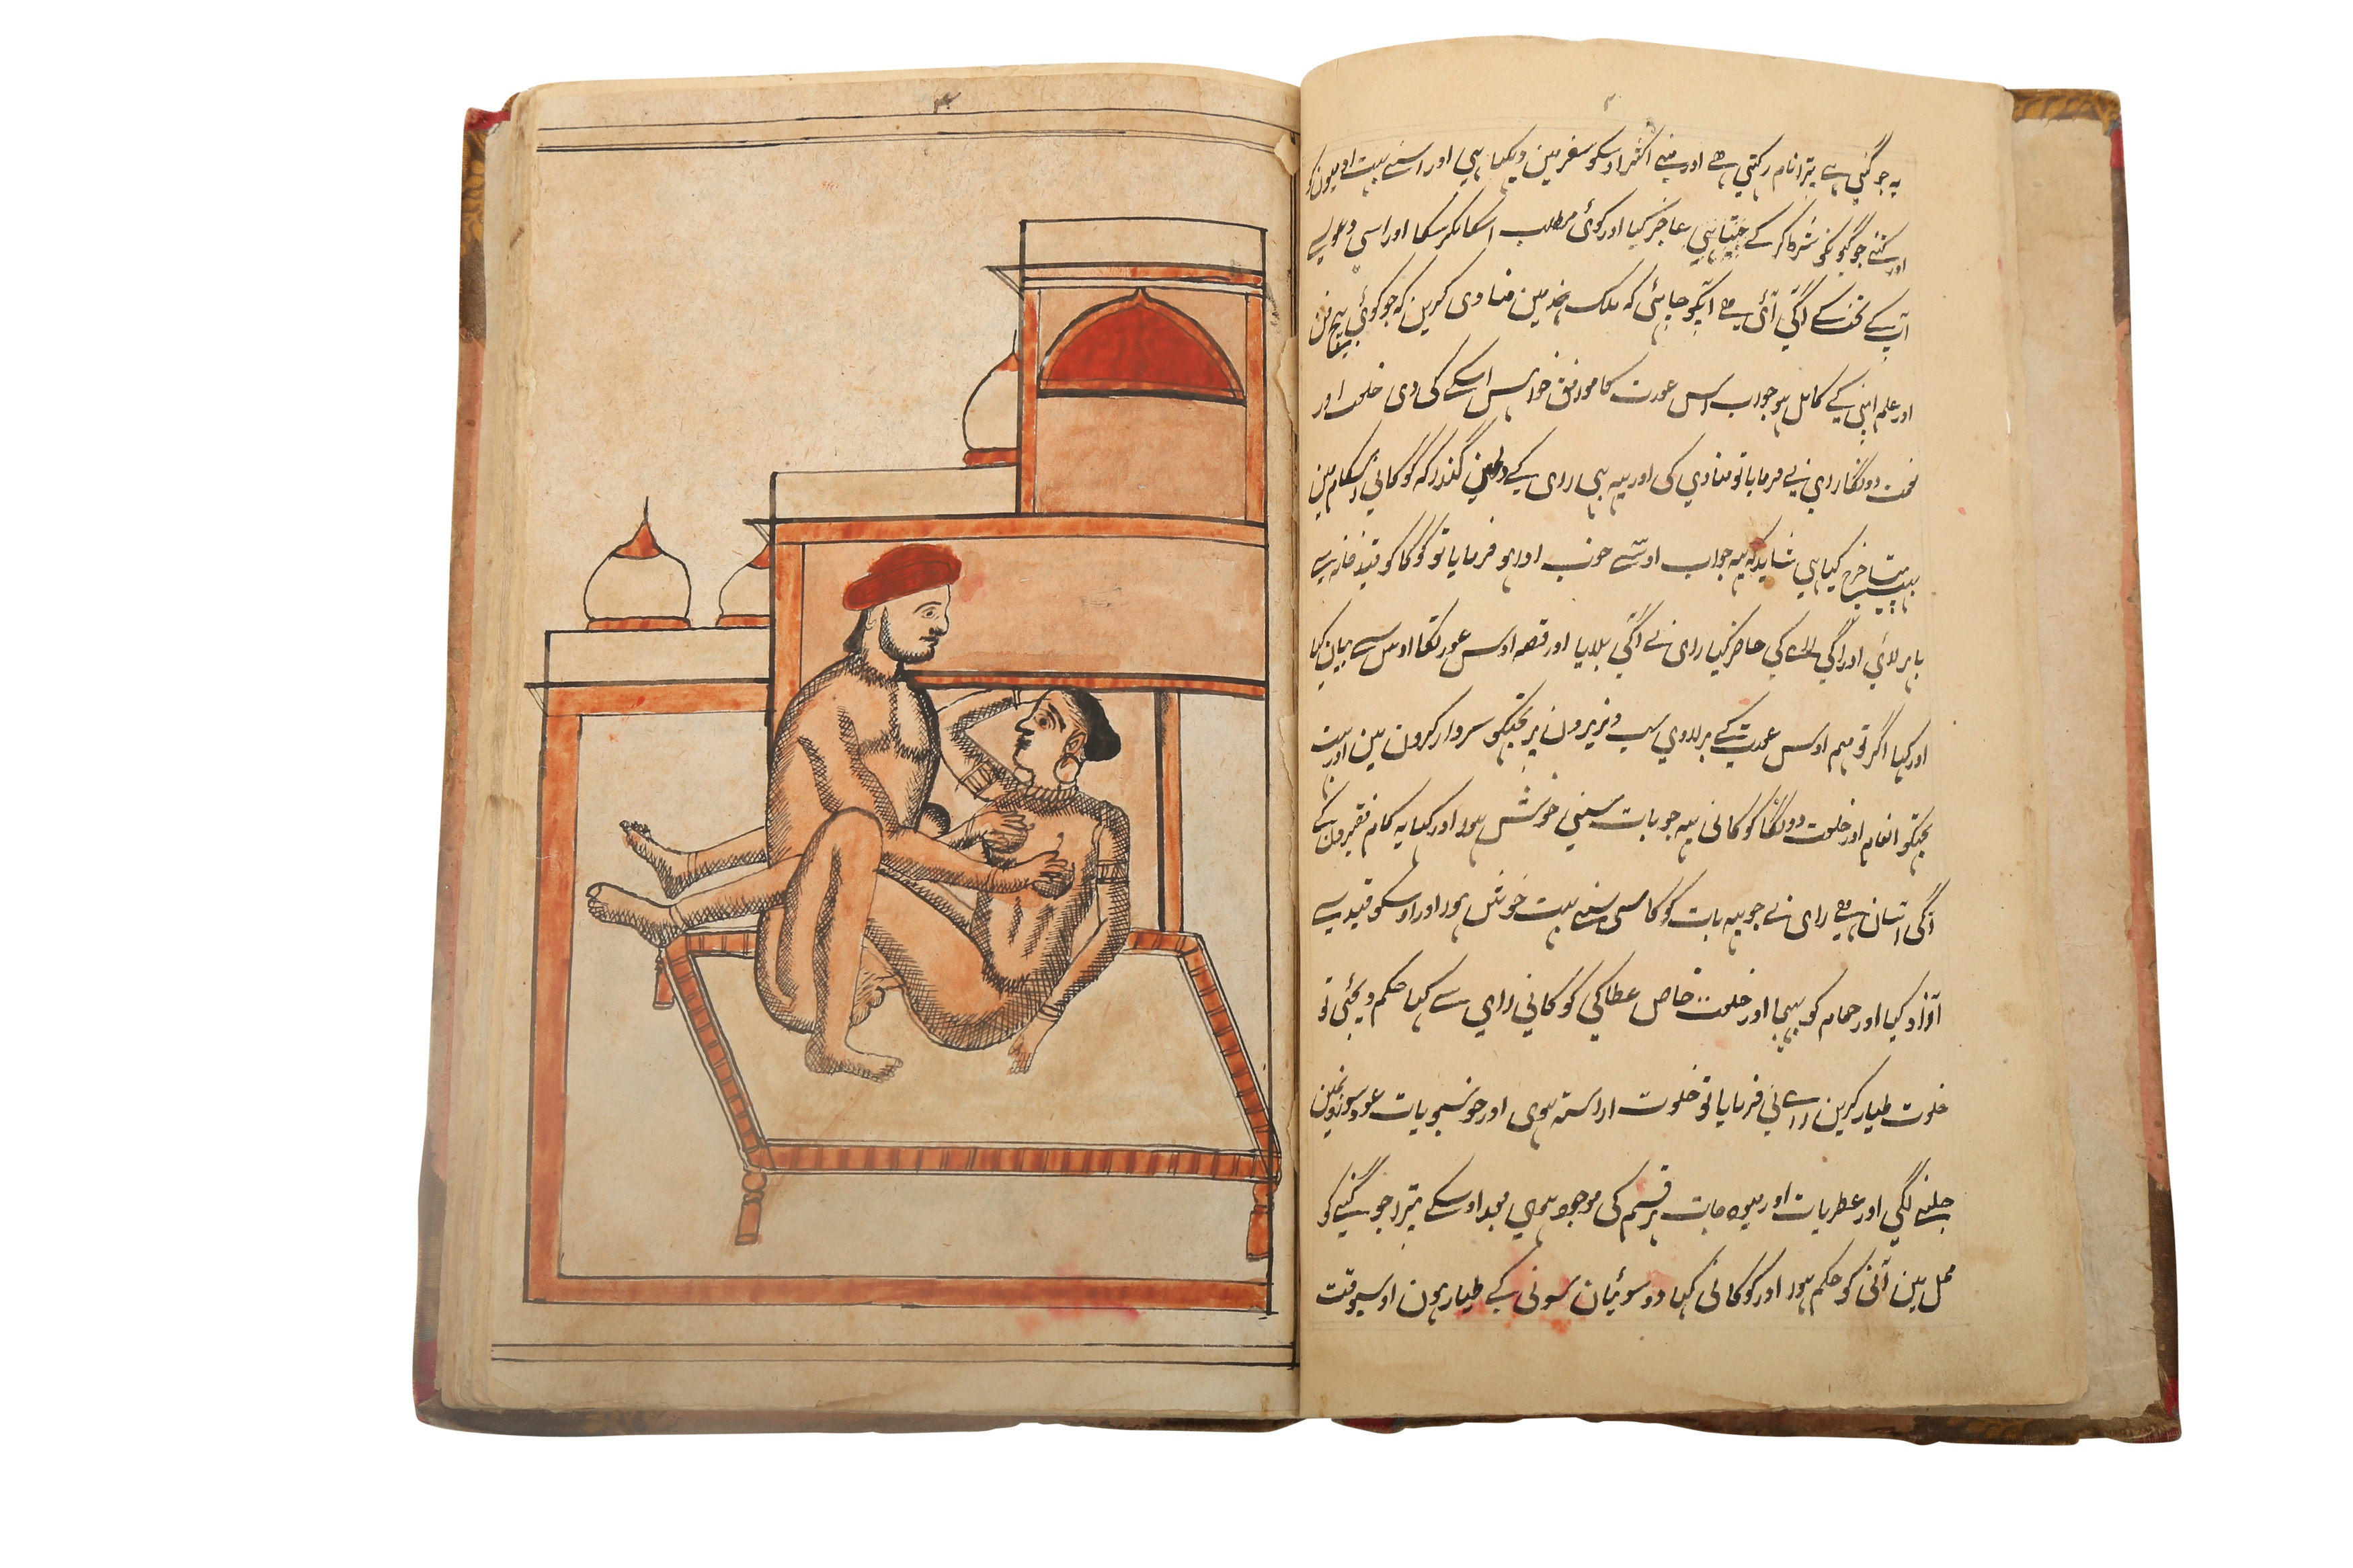 ۳
یہ جوگنی ہے تیرا نام رکہتی ہے اور مینے اکثر اوسکو سفر مین دیکہا ہی اور اسنے بہت ادمیون کو
اور کتنے جوگیونکو شرط کر کے جیتا ہی عاجز کیا اور کوئی مطلب اسکا نکر سکا اور اسی دعوی سے
آپ کے تخت کے اگی آئی ہے اپکو چاہئی کہ ملک ہند مین منادی کرین کہ جو کوئی بیچ فن
اور علم اپنی کے کامل ہو جواب اس عورت کا موافق خواہش اسکے کی دی خلعت اور
نعمت دونگا رای نے فرمایا تو منادی کی اور یہ بہی رای کے دلمین گذرا کہ کوکانی اس کام مین
بہت خرچ کیا ہی شاید کہ یہ جواب اوسے خوب اور ہو فرمایا تو کوکا کو قید خانہ سے
باہر لائی اور اگی رای کی حاضر کیا رای نے اگی بلایا اور قصہ اوس عورتکا اوس سے بیان کیا
اور کہا اگر تو مہم اوس عورت کے بر لاوی سب وزیرون پر تجہکو سردار کرون مین اور بہت
تجہکو انعام اور خلعت دونگا کوکانی یہ جو بات سنی خوش ہوا اور کہا یہ کام فقیرون کے
اگی اسان ہے رای نے جو یہ بات کوکا سی سنے بہت خوش ہوا اور اوسکو قید سے
آزاد کیا اور حمام کو بہیجا اور خلعت خاص عطا کی کوکانی رای سے کہا حکم دیجئی تو
خلوت طیار کرین رای نی فرمایا تو خلوت اراستہ ہوی اور خوشبویات عود سوزونمین
جلنے لگی اور عطریات اور میوہ جات ہر قسم کی موجود ہوی بعد اوسکے تیرا جوگنی کو
محل مین آنی کو حکم ہوا اور کوکانی کہا دو سوئیان سونی کے طیار ہون اوسیوقت